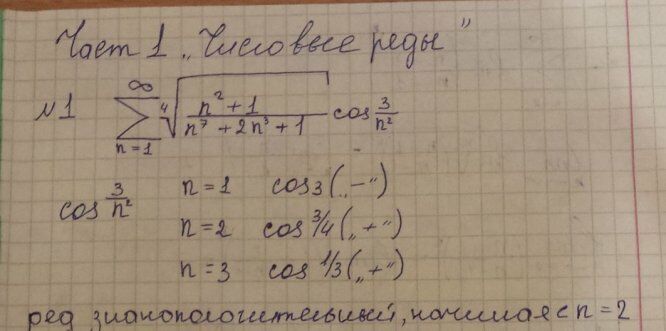 Част 1 „Числовые реды"
№1 ∞ ∑ n=1 ⁴√((n²+1)/(n⁷+2n³+1)) cos 3/n²
cos 3/n² n=1 cos 3 („−")
n=2 cos 3/4 („+")
n=3 cos 1/3 („+")
ред знакоположительный, начиная с n=2